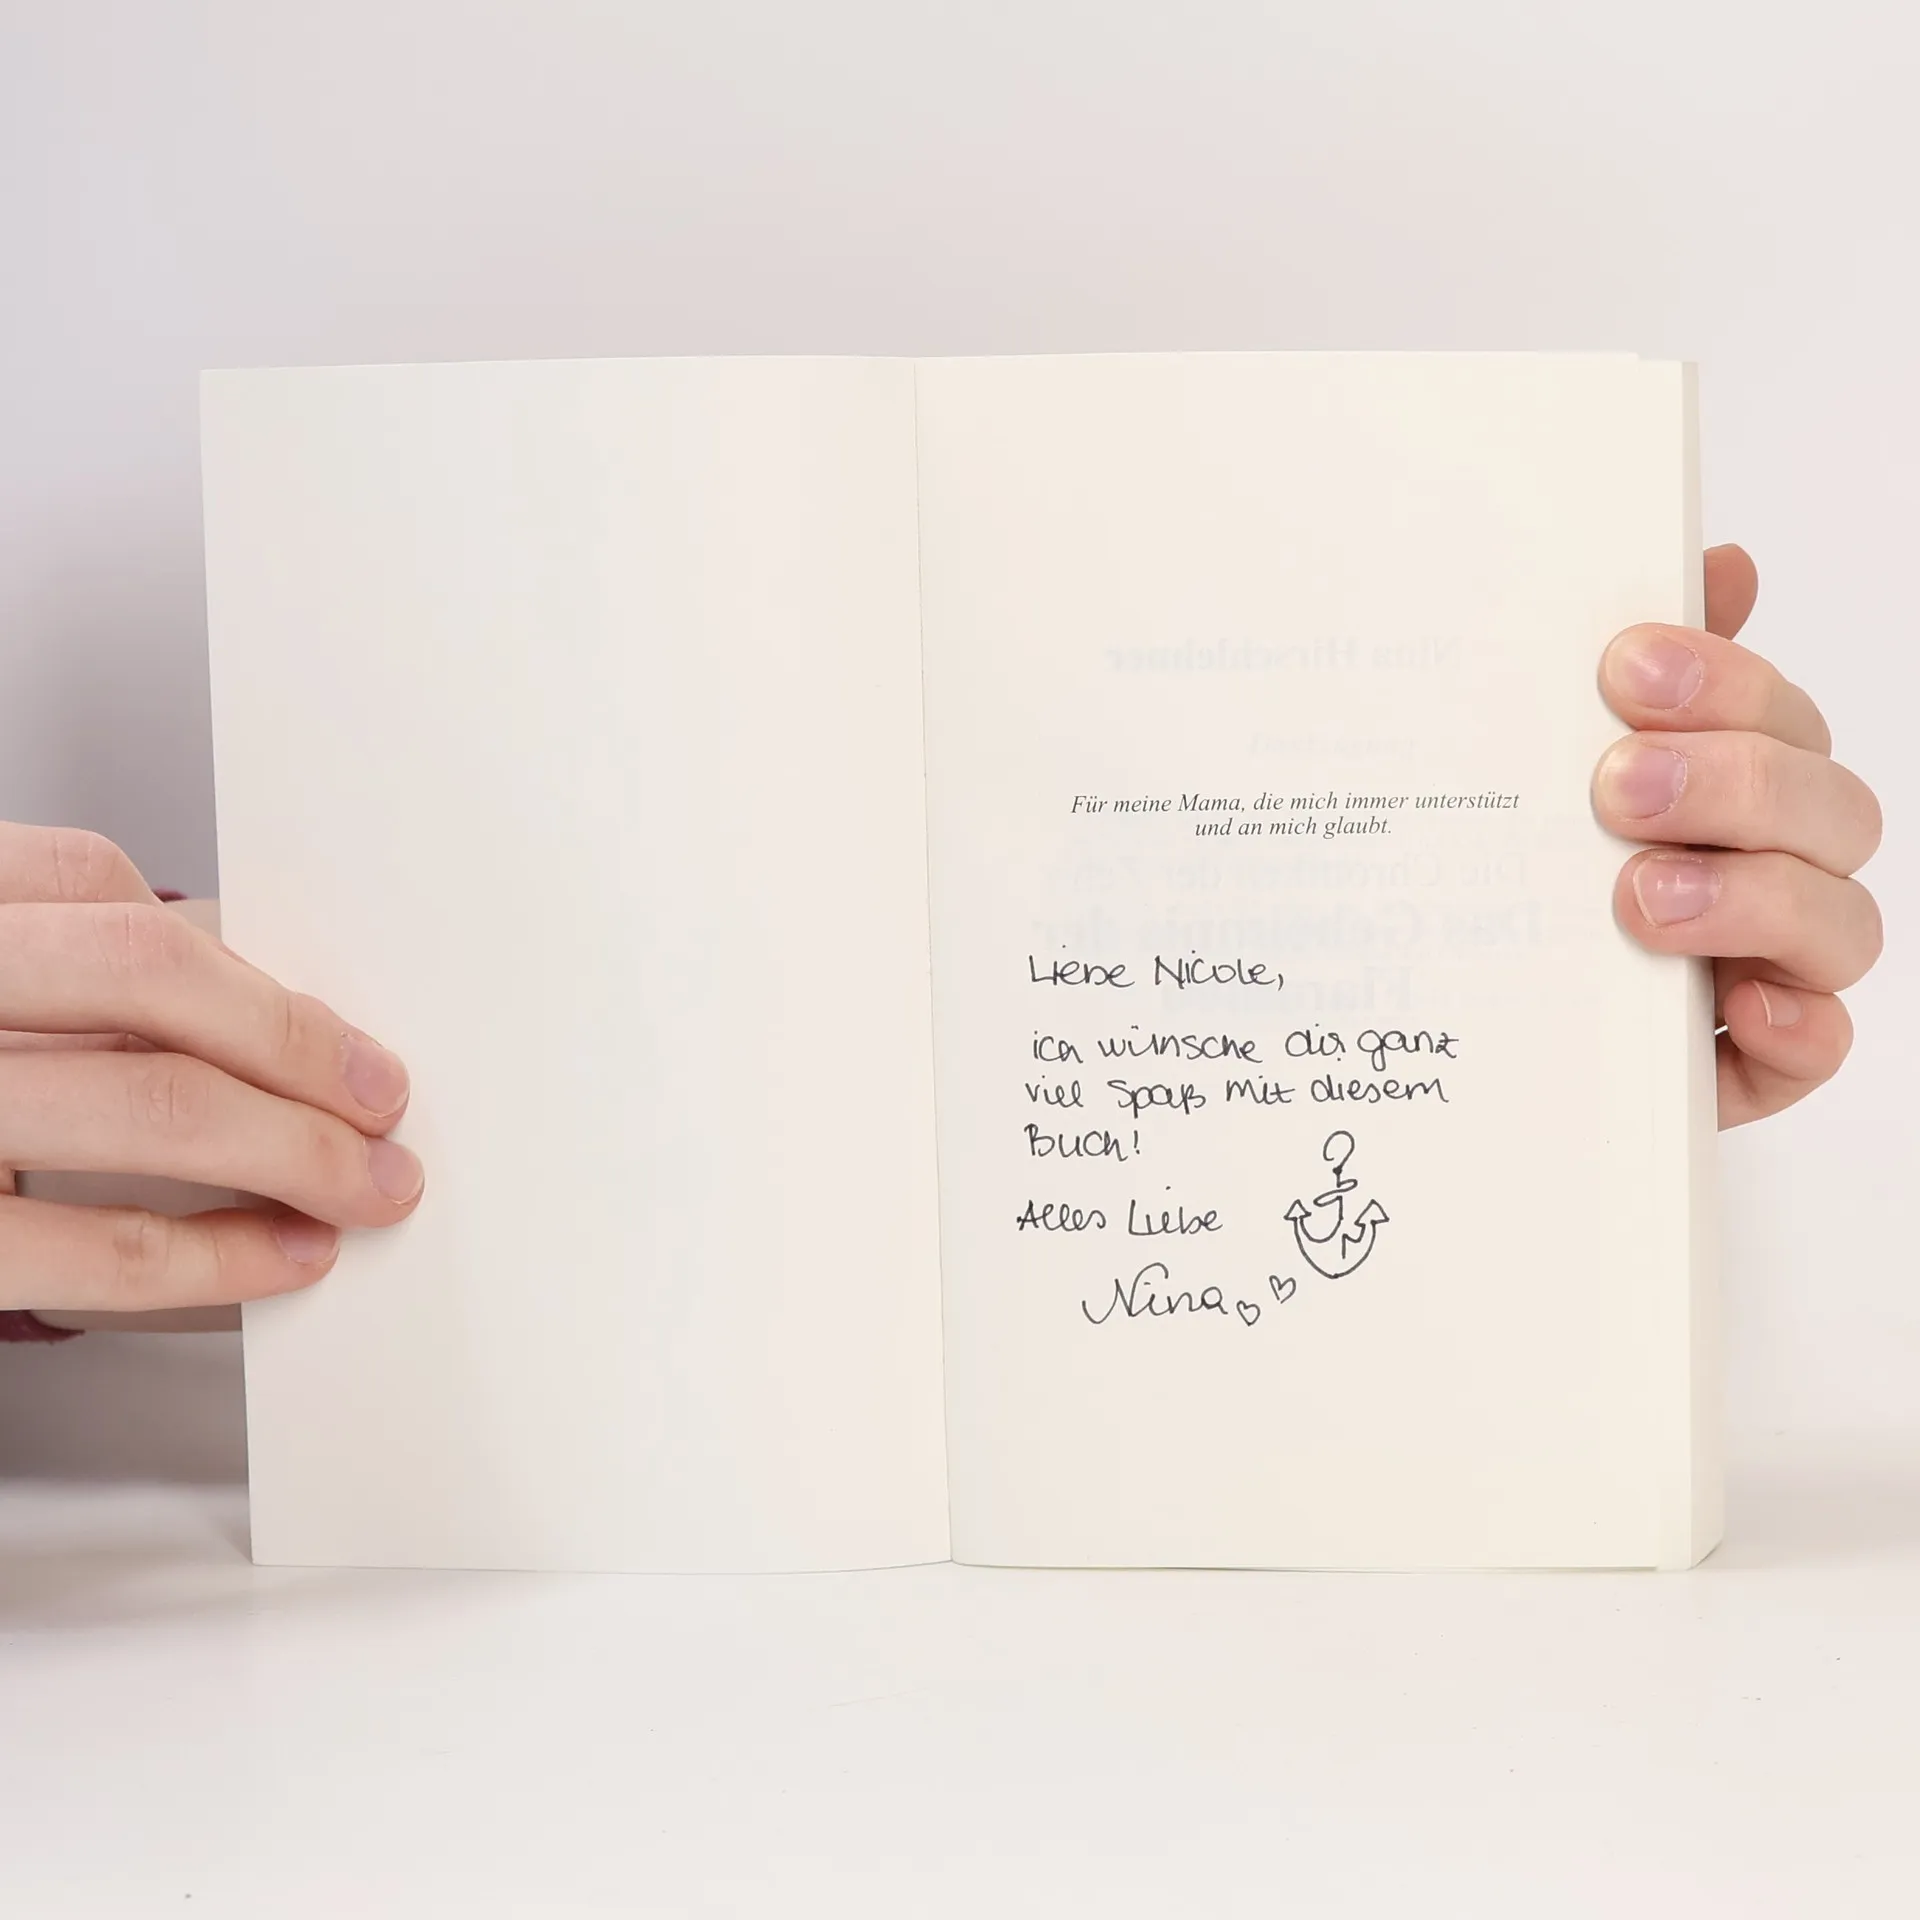 Für meine Mama, die mich immer unterstützt
und an mich glaubt.
Liebe Nicole,
ich wünsche dir ganz
viel Spaß mit diesem
Buch!
Alles Liebe
Nina